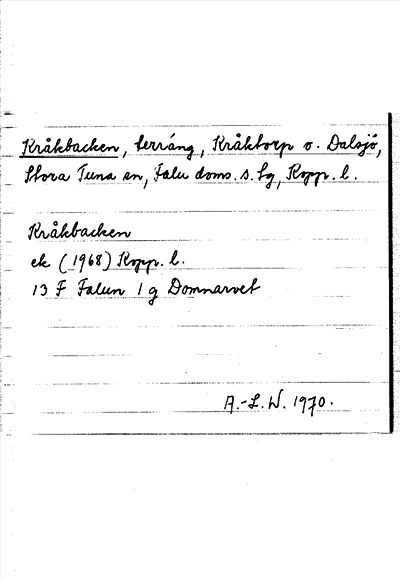 Kråkbacken, terräng, Kråktorp o. Dalsjö,
Stora Tuna sn, Falu doms. s. tg, Kopp. l.
Kråkbacken
ek (1968) Kopp. l.
13 F Falun 1 g Domnarvet
A.-L. W. 1970.